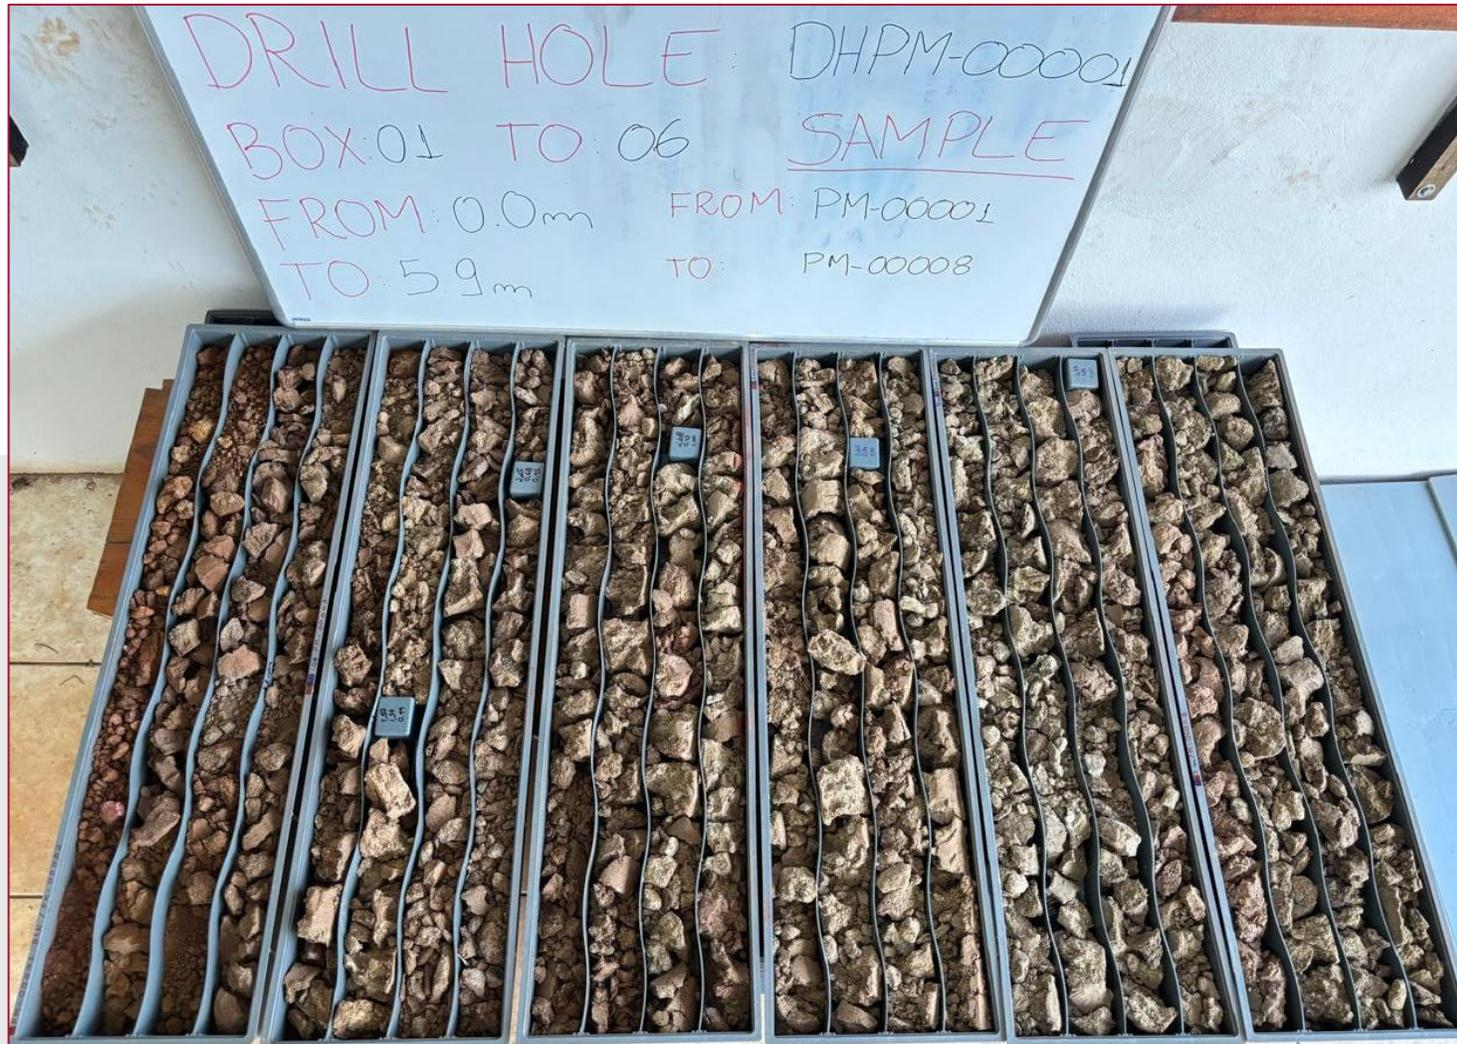 DRILL HOLE: DHPM-00001
BOX: 01 TO: 06 SAMPLE
FROM: 0.0m FROM: PM-00001
TO: 5.9m TO: PM-00008
3.53